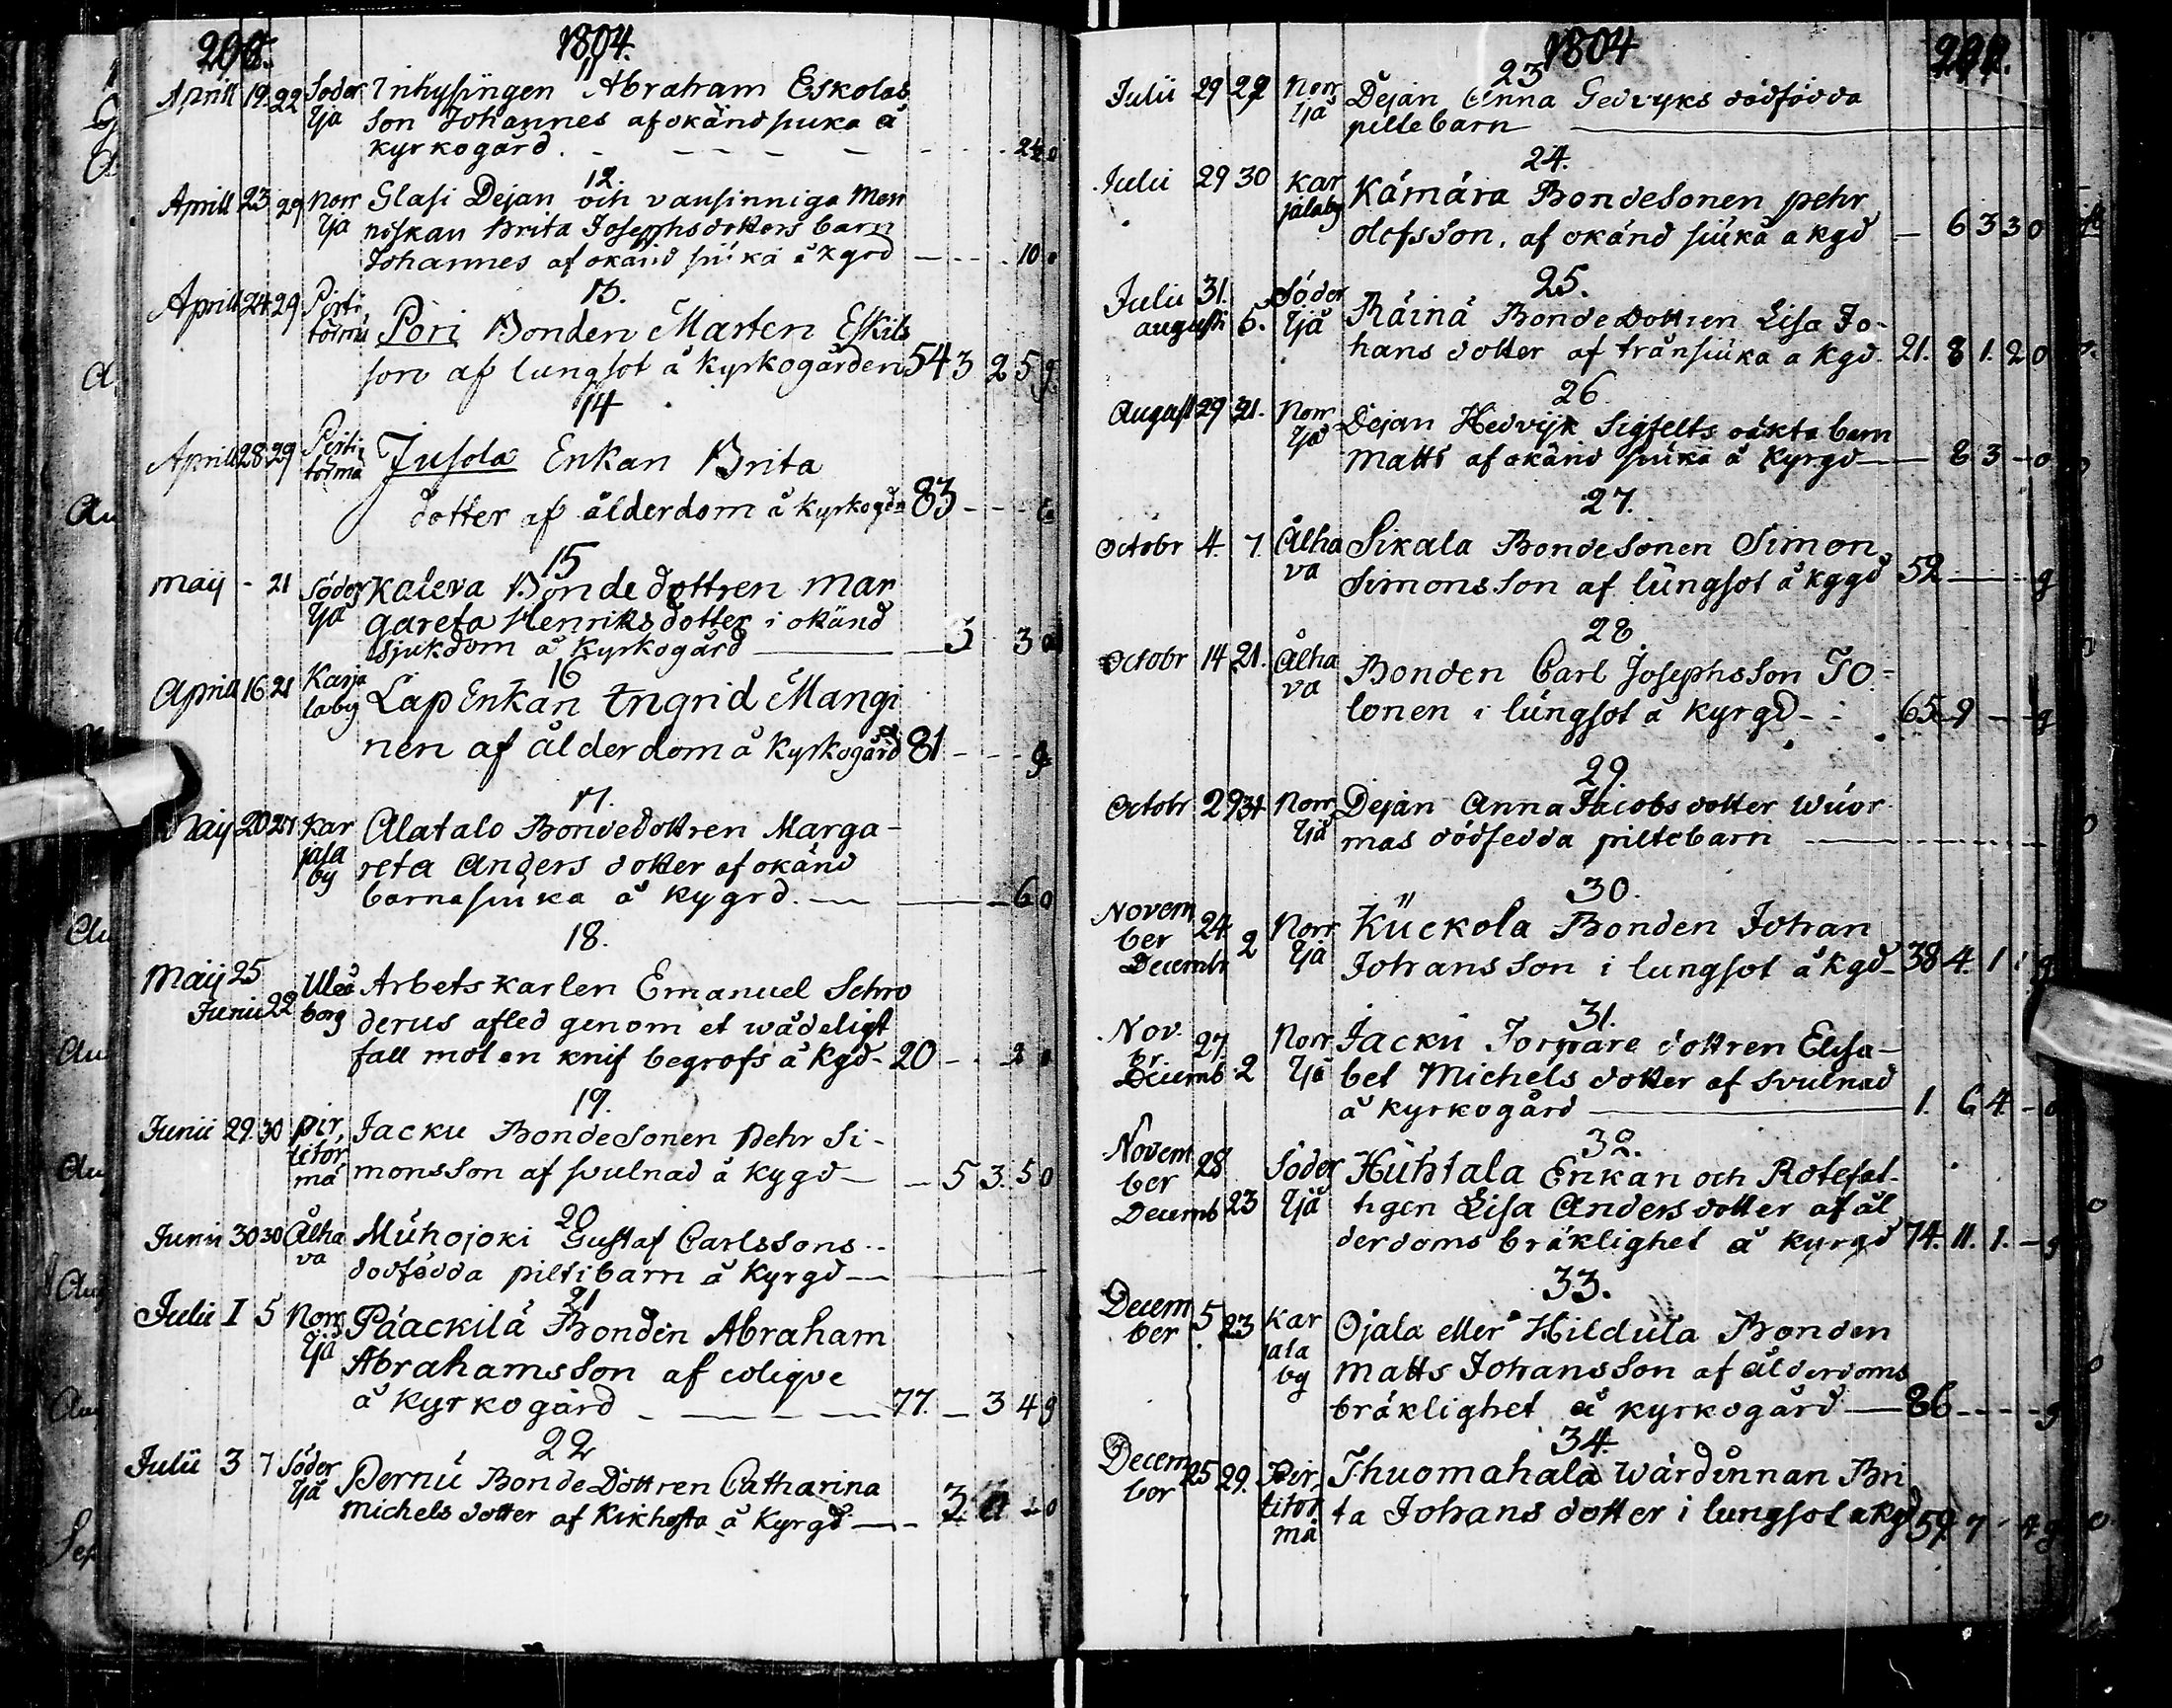 1804.
11
Aprill 19 22 Söder Inhysingen Abraham Eskolas
Ijå son Johannes af okänd siuka å
kyrkogård. - - - - - - - 24 o
12.
Aprill 23 29 Norr Glasi Dejan och vansinniga Men
Ijå niskan Brita Josephsdotters barn
Johannes af okänd siuka å kgrd - - - 10
13.
Aprill 24 29 Pirti
törmä Pori Bonden Marten Eskils
son af lungsot å kyrkogården 54 3 2 5 g
14
Aprill 28 29 Pirti
törmä Jusola Enkan Brita
dotter af ålderdom å kyrkogdn 83 - - -
15
Maij - 21 Söder Kaleva Bonde dottren Mar
Ijå gareta Henriksdotter i okänd
sjukdom å kyrkogård — 3 3
16
Aprill 16 21 Karja
laby Lap Enkan Ingrid Mangi
nen af ålderdom å kyrkogård 81 - - - g
17.
Maij 20 21 Kar Alatalo Bondedottren Marga-
jala reta Anders dotter af okänd
by barnasiuka å kygrd. — 6 o
18.
Maij 25
Junii 22 Uleå Arbetskarlen Emanuel Schro
borg derus afled genom et wådeligt
fall mot en knif begrofs å kgd - 20 - - 2
19.
Junii 29. 30 Pir Jacku Bondesonen Pehr Si-
titör monsson af svulnad å kygd — 5 3. 5 o
mä
20
Junii 30 30 Alha Muhojoki Gustaf Carlssons
va dödfödda piltibarn å kyrgd —
21
Julii I 5 Norr Pääckilä Bonden Abraham
Ijå Abrahamsson af coliqve
å kyrkogård - — — — 77. — 3 4 g
22
Julii 3 7 Söder Pernu BondeDottren Catharina
Ijå Michels dotter af Kikhosta å kyrgd — 3. - o
1804
23
Julii 29 29 Norr Dejan Anna Gedvyks dödfödda
Ijå piltebarn —
24.
Julii 29 30 Kar Kämärä Bondesonen Pehr
jalaby Olofsson, af okänd siuka å kgd — 6 3 3 o
25.
Julii 31. Söder Räinä Bondedottren Lisa Jo-
augusti 5. Ijå hans dotter af trånsiuka a kgd. 21. 8 1. 2 o
26
August 29 21. Norr Dejan Hedvijk Sigfelts oäkta barn
Ijå Matts af okänd siuka å kyrgd — 8 3 - o
27.
Octobr 4. 7. Alha Sikala Bondesonen Simon
va Simonsson af lungsot å kggd 52 — — g
28
Octobr 14 21. Alha Bonden Carl Josephsson Jo-
va lonen i lungsot å kyrgd - 65 9 — g
29
Octobr 29 31 Norr Dejan Anna Jacobsdotter Wuor
Ijå mas dödfedda piltebarn —
30.
Novem
ber 24 Norr Kuckola Bonden Johan
Decembr 2 Ijå Johansson i lungsot å kgd - 38 4. 1 1 g
31.
Nov.
br. 27. Norr Jacku Torpare dottren Elisa-
Decemb 2 Ijå bet Michels dotter af svulnad
å kyrkogård — 1. 6 4 - o
32.
Novem
ber 28 Söder Huhtala Enkan och Rotefat-
Decemb 23 Ijå tigen Lisa Anders dotter af ål
derdoms bräklighet å kyrgd 74. 11. 1. — g
33.
Decem
ber 5 23 Kar Ojala eller Hildula Bonden
jala Matts Johansson af ålderdoms
by bräklighet å kyrkogård — 86 - - - g
34
Decem
ber 25 29. Pir Ihuomahala Wärdinnan Bri
titör ta Johans dotter i lungsot å kgd 59 7 - 4 g
mä